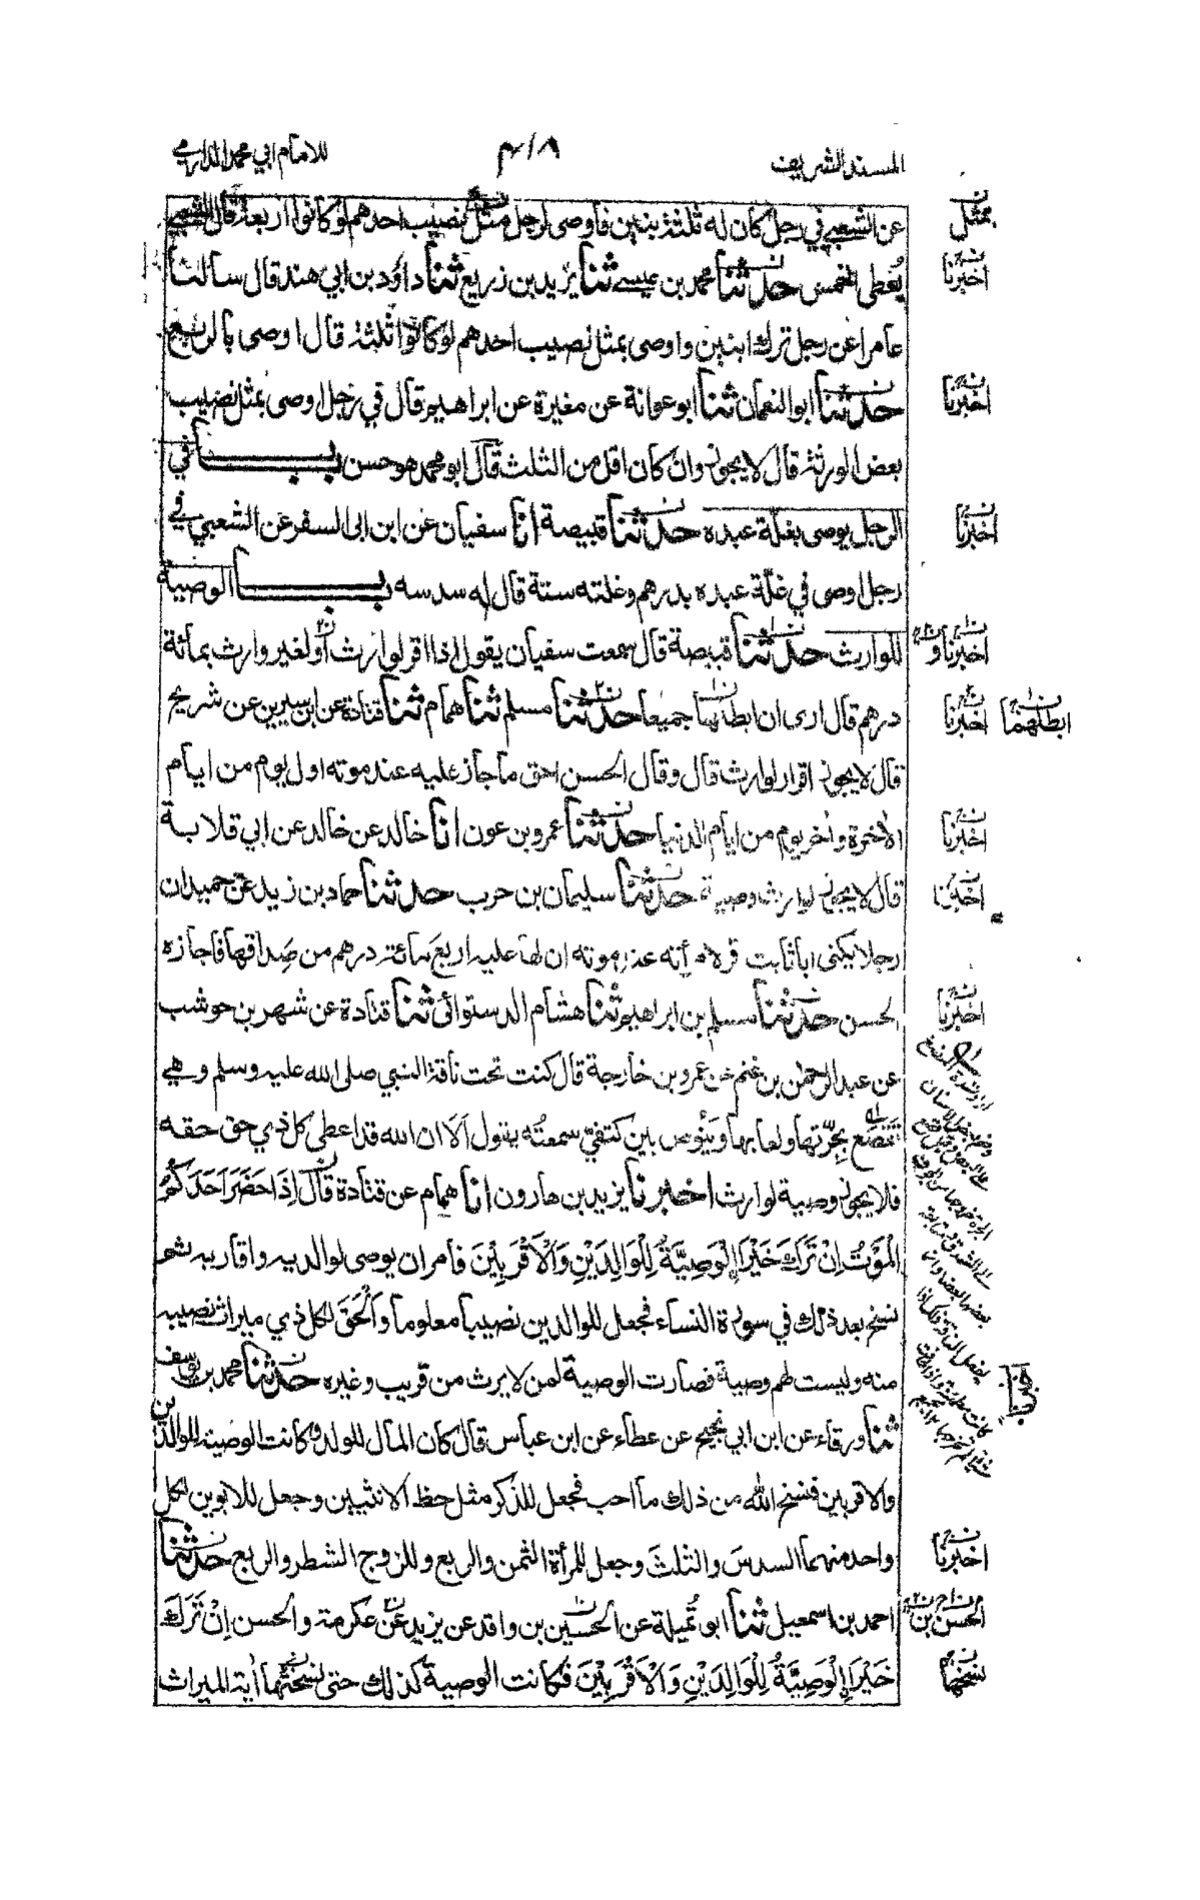 المسند الشريف
٤١٨
للامام ابي محمد الدارمي
عن الشعبي في رجل كان له ثلثة بنين فاوصى لرجل مثل نصيب احدهم لو كانوا اربعة قال الشعبي
يُعطى الخمس حدثنا محمد بن عيسى ثنا يزيد بن زريع ثنا داؤد بن ابي هند قال سالنا
عامرا عن رجل ترك ابنين واوصى بمثل نصيب احدهم لو كانوا ثلثة قال اوصى بالربع
حدثنا ابو النعمان ثنا ابو عوانة عن مغيرة عن ابراهيم قال في رجل اوصى بمثل نصيب
بعض الورثة قال لا يجوز وان كان اقل من الثلث قال ابو محمد هو حسن باب في
الرجل يوصى بغلة عبده حدثنا قبيصة انا سفيان عن ابن ابى السفر عن الشعبي في
رجل اوصى في غلّة عبده بدرهم وغلته ستة قال له سدسه باب الوصية
للوارث حدثنا قبيصة قال سمعت سفيان يقول اذا اقر لوارث أو لغير وارث بمائة
درهم قال ارى ان ابطلها جميعا حدثنا مسلم ثنا همام ثنا قتادة عن ابن سيرين عن شريح
قال لا يجوز اقرار لوارث قال وقال الحسن احق ما جاز عليه عند موته اول يوم من ايام
الاخرة واٰخر يوم من ايام الدنيا حدثنا عمرو بن عون انا خالد عن خالد عن ابي قلابة
قال لا يجوز لوارث وصية حدثنا سليمان بن حرب حدثنا حماد بن زيد عن حميد ان
رجلا يكنى ابا ثابت اقر لامرأته عند موته ان لها عليه اربع مائة درهم من صِداقها فاجازه
الحسن حدثنا مسلم بن ابراهيم ثنا هشام الدستوائى ثنا قتادة عن شهر بن حوشب
عن عبد الرحمن بن غنم عن عمرو بن خارجة قال كنت تحت ناقة النبي صلى الله عليه وسلم وهي
تقصع بجِرّتها ولعابها وينُوص بين كتفيّ سمعتُه يقول اَلَا ان الله قد اعطى كل ذي حق حقه
فلا يجوز وصية لوارث اخبرنا يزيد بن هارون انا همام عن قتادة قال اِذَا حَضَرَ اَحَدَكُمُ
الْمَوْتُ اِنْ تَرَكَ خَيْرَا اِلْوَصِيَّةُ لِلْوَالِدَيْنِ وَالْاَقْرَبِيْنَ فامر ان يوصى لوالديه واقاربه ثم
نسخ بعد ذلك في سورة النساء فجعل للوالدين نصيبا معلوما واَلْحَقَ لكل ذي ميراث نصيبه
منه وليست لهم وصية فصارت الوصية لمن لا يرث من قريب وغيره حدثنا محمد بن يوسف
ثنا ورقاء عن ابن ابي نجيح عن عطاء عن ابن عباس قال كان المال للولد وكانت الوصية للوالدين
والاقربين فنسخ الله من ذلك ما احب فجعل للذكر مثل حظ الانثيين وجعل للابوين لكل
واحد منهما السدسَ والثلثَ وجعل للمرأة الثمن والربع وللزوج الشطر والربع حدثنا
احمد بن اسمعيل ثنا ابو تُميلة عن الحسين بن واقد عن يزيد عن عكرمة والحسن اِنْ تَرَكَ
خَيْرَا اِلْوَصِيَّةُ لِلْوَالِدَيْنِ وَالْاَقْرَبِيْنَ فكانت الوصية كذلك حتى نسختها اٰية الميراث
بمثل
اخبرنا
اخبرنا
اخبرنا
اخبرنا و
اخبرنا
ابطلهما
اخبرنا
اخبرنا
اخبرنا
اخبرنا
الحسن بن
نسخها